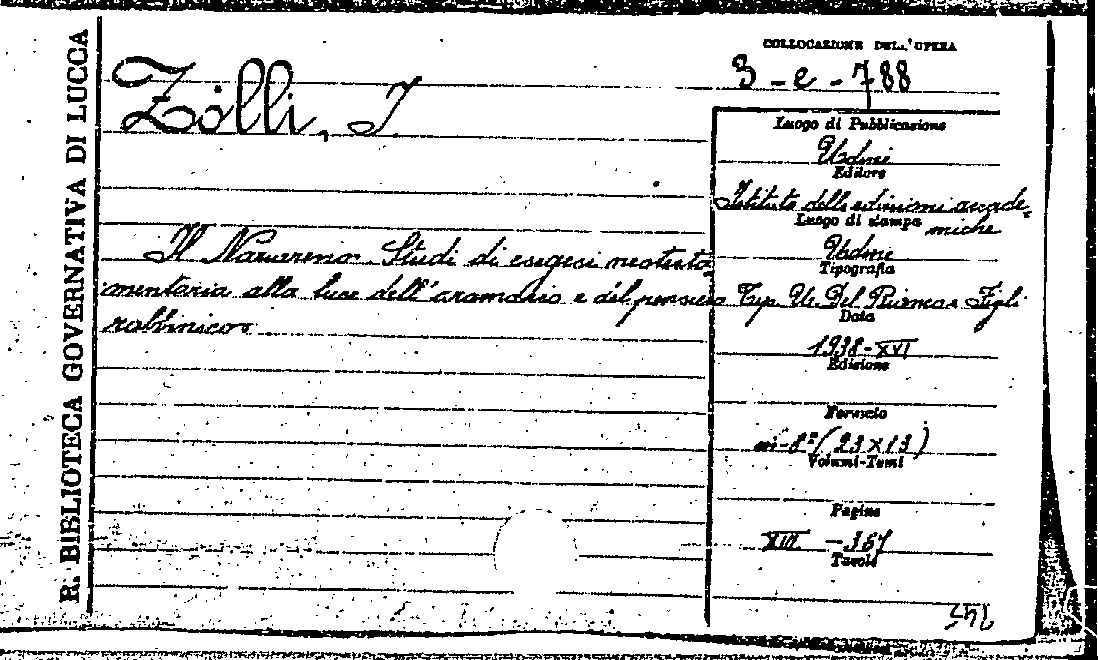 R. BIBLIOTECA GOVERNATIVA DI LUCCA
Zolli, I
COLLOCAZIONE DELL'OPERA
3 - e - 788
Il Nazareno. Studi di esegesi neotesta
mentaria alla luce dell'aramaico e del pensiero
rabbinico
Luogo di Pubblicazione
Udine
Editore
Istituto delle edizioni accade,
miche
Luogo di stampa
Udine
Tipografia
Tip. Del Bianco e Figli
Data
1938-XVI
Edizione
Formato
in-8° (23x13)
Volumi-Tomi
Pagine
XIII - 367
Tavole